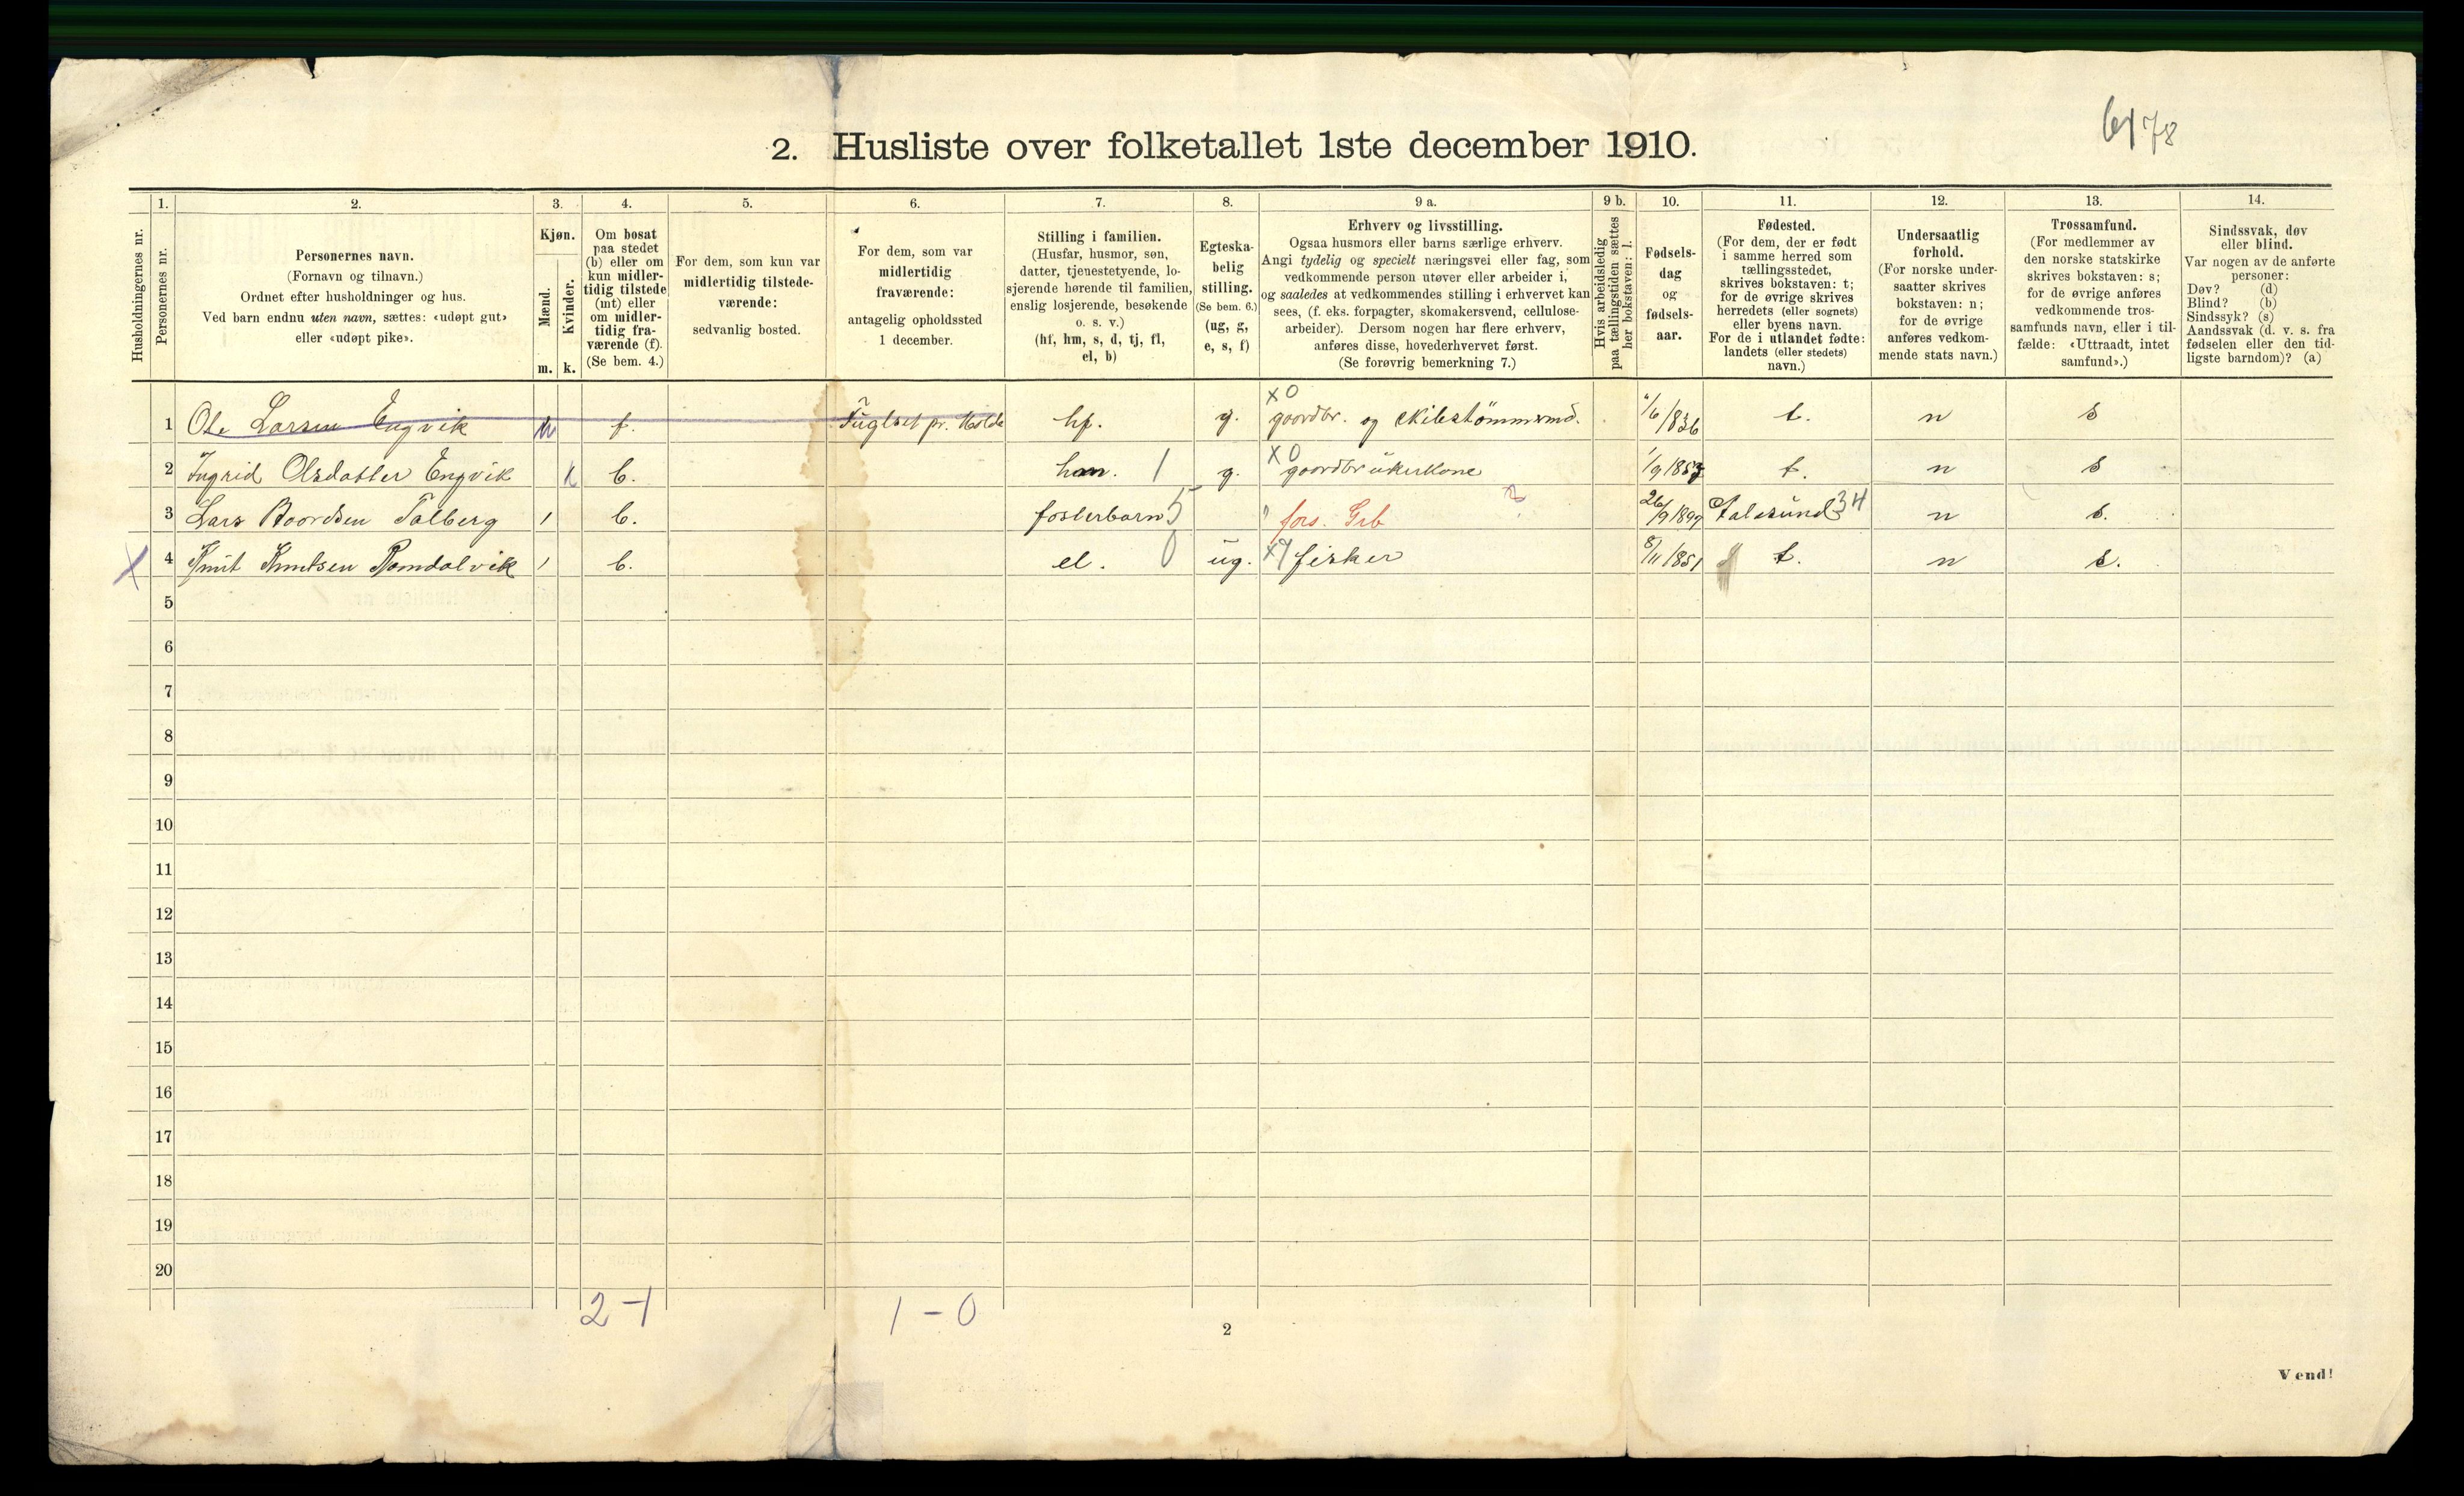 6478
2. Husliste over folketallet 1ste december 1910.
Husholdningernes nr.
1. Personernes nr.
2. Personernes navn. (Fornavn og tilnavn.) Ordnet efter husholdninger og hus. Ved barn endnu uten navn, sættes: «udøpt gut» eller «udøpt pike».
3. Kjøn. Mænd. m. Kvinder. k.
4. Om bosat paa stedet (b) eller om kun midlertidig tilstede (mt) eller om midlertidig fraværende (f). (Se bem. 4.)
5. For dem, som kun var midlertidig tilstedeværende: sedvanlig bosted.
6. For dem, som var midlertidig fraværende: antagelig opholdssted 1 december.
7. Stilling i familien. (Husfar, husmor, søn, datter, tjenestetyende, losjerende hørende til familien, enslig losjerende, besøkende o. s. v.) (hf, hm, s, d, tj, fl, el, b)
8. Egteskabelig stilling. (Se bem. 6.) (ug, g, e, s, f)
9 a. Erhverv og livsstilling. Ogsaa husmors eller barns særlige erhverv. Angi tydelig og specielt næringsvei eller fag, som vedkommende person utøver eller arbeider i, og saaledes at vedkommendes stilling i erhvervet kan sees, (f. eks. forpagter, skomakersvend, cellulosearbeider). Dersom nogen har flere erhverv, anføres disse, hovederhvervet først. (Se forøvrig bemerkning 7.)
9 b. Hvis arbeidsledig paa tællingstiden sættes her bokstaven: l.
10. Fødselsdag og fødselsaar.
11. Fødested. (For dem, der er født i samme herred som tællingsstedet, skrives bokstaven: t; for de øvrige skrives herredets (eller sognets) eller byens navn. For de i utlandet fødte: landets (eller stedets) navn.)
12. Undersaatlig forhold. (For norske undersaatter skrives bokstaven: n; for de øvrige anføres vedkommende stats navn.)
13. Trossamfund. (For medlemmer av den norske statskirke skrives bokstaven: s; for de øvrige anføres vedkommende trossamfunds navn, eller i tilfælde: «Uttraadt, intet samfund».)
14. Sindssvak, døv eller blind. Var nogen av de anførte personer: Døv? (d) Blind? (b) Sindssyk? (s) Aandssvak (d. v. s. fra fødselen eller den tidligste barndom)? (a)
1 Ole Larsen Engvik f. Fuglset pr. Molde hf. g. X0 gaardbr. og skibstømmermd. /6/836 t. n s
2 Ingrid Olsdatter Engvik k b. 1 g. X0 gaardbrukerkone 1/9 1853 t. n s
3 Lars Baardsen Talberg 1 b. fosterbarn 5 fors. Grb ? 26/9 1899 Aalesund 34 n s.
X 4 Knut Knutsen Romdalvik 1 b. el. 0 ug. X9 fisker 8/11 1851 t. n s.
5
6
7
8
9
10
11
12
13
14
15
16
17
18
19
20
2-1 1-0
2
Vend!